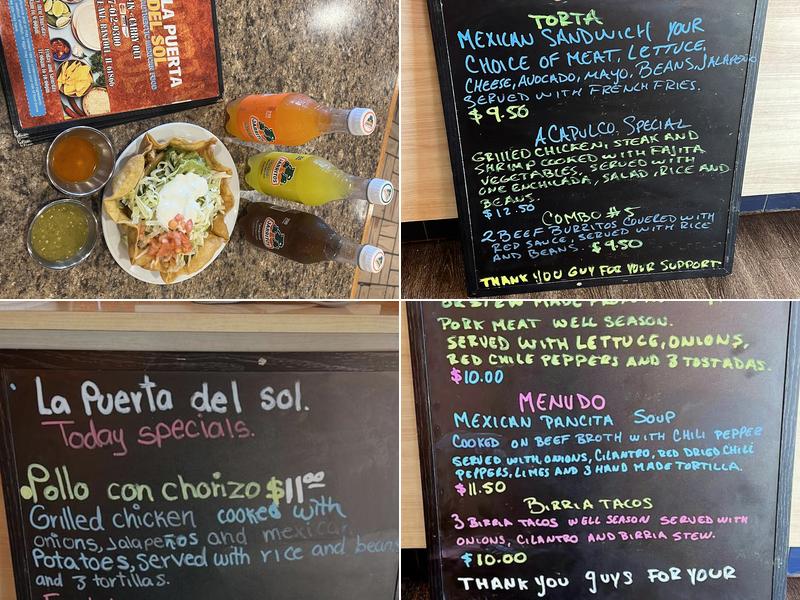 LA PUERTA
DEL SOL
TORTA
MEXICAN SANDWICH YOUR
CHOICE OF MEAT, LETTUCE,
CHEESE, AVOCADO, MAYO, BEANS, JALAPEÑO
SERVED WITH FRENCH FRIES.
$9.50
ACAPULCO SPECIAL
GRILLED CHICKEN, STEAK AND
SHRIMP COOKED WITH FAJITA
VEGETABLES. SERVED WITH
ONE ENCHILADA, SALAD, RICE AND
BEANS.
$12.50
COMBO #5
2 BEEF BURRITOS COVERED WITH
RED SAUCE, SERVED WITH RICE
AND BEANS. $9.50
THANK YOU GUY FOR YOUR SUPPORT
La Puerta del sol.
Today specials.
Pollo con chorizo $11.00
Grilled chicken cooked with
onions, jalapeños and mexican
Potatoes, served with rice and beans
and 3 tortillas.
PORK MEAT WELL SEASON.
SERVED WITH LETTUCE, ONIONS,
RED CHILE PEPPERS AND 3 TOSTADAS.
$10.00
MENUDO
MEXICAN PANCITA SOUP
COOKED ON BEEF BROTH WITH CHILI PEPPER
SERVED WITH, ONIONS, CILANTRO, RED DRIED CHILI
PEPPERS, LIMES AND 3 HAND MADE TORTILLA.
$11.50
BIRRIA TACOS
3 BIRRIA TACOS WELL SEASON SERVED WITH
ONIONS, CILANTRO AND BIRRIA STEW.
$10.00
THANK YOU guys FOR YOUR